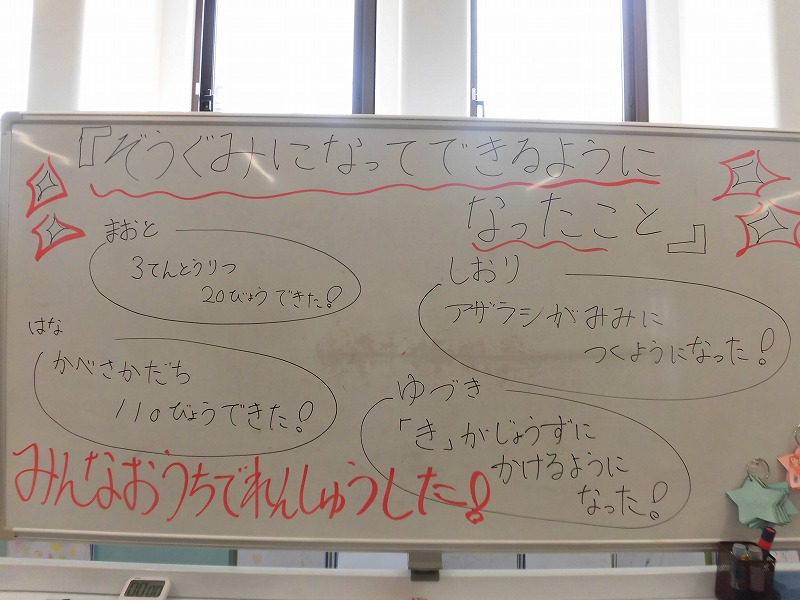 『ぞうぐみになってできるように
なったこと』
まおと
3てんとうりつ
20びょうできた!
しおり
アザラシがみみに
つくようになった!
はな
かべさかだち
110びょうできた!
ゆづき
「き」がじょうずに
かけるように
なった!
みんなおうちでれんしゅうしたー!